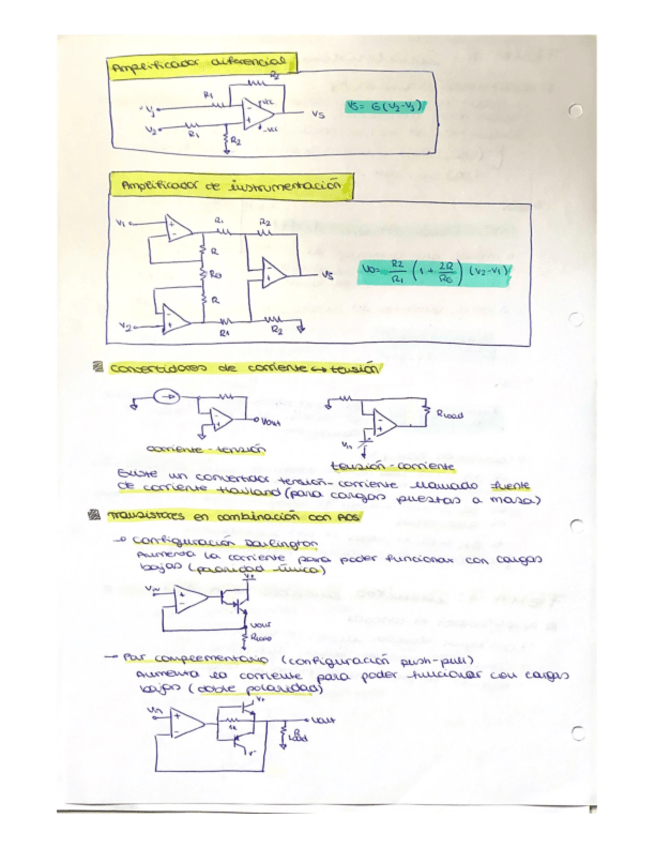 Amplificador diferencial
R2
R1
V1
Vcc
V5
V5 = G(V2-V1)
V2
R1
-Vcc
R2
Amplificador de instrumentación
V1
R1
R2
R
RG
V5
V0= R2/R1 (1 + 2R/RG) (V2-V1)
R
V2
R1
R2
Convertidores de corriente ↔ tensión
Vout
RLoad
Vin
corriente - tensión
tensión - corriente
Existe un convertidor tensión-corriente llamado fuente
de corriente Howland (para cargas puestas a masa)
Transistores en combinación con AOS
→ Configuración Darlington
Aumenta la corriente para poder funcionar con cargas
bajas (polaridad única)
V+
Vin
Vout
RLoad
→ Par complementario (configuración push-pull)
Aumenta la corriente para poder funcionar con cargas
bajas (doble polaridad)
V+
Vin
Vout
R Load
V-